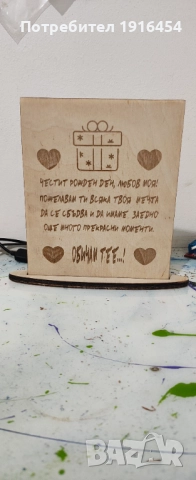 Потребител 1916454
ЧЕСТИТ РОЖДЕН ДЕН, ЛЮБОВ МОЯ!
ПОЖЕЛАВАМ ТИ ВСЯКА ТВОЯ МЕЧТА
ДА СЕ СБЪДВА И ДА ИМАМЕ ЗАЕДНО
ОЩЕ МНОГО ПРЕКРАСНИ МОМЕНТИ.
ОБИЧАМ ТЕЕ...!
BAZAR